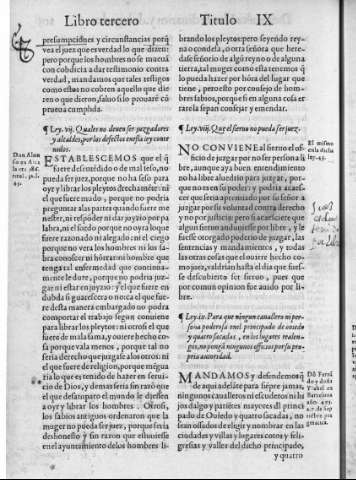 Libro tercero
Titulo IX
presumpciones y circunstancias porq̃
vea el juez que es verdad lo que dizen:
pero porque los hombres no se mueuã
con cobdicia a dar testimonio contra
verdad, mandamos que tales testigos
como estos no cobren aquello que dizeren
o que dieron, saluo si lo prouarē cõ
prueua cumplida.
¶ Ley. vij. Quales no deuen ser juzgadores
y alcaldes, por los defectos en esta ley contenidos.
Don Alonso
en Alcala
era de
mil, pet.
43.
ESTABLESCEMOS que el q̃
fuere desentẽdido o de mal seso, no
pueda ser juez, porque no ha seso para
oyr y librar los pleytos derechamẽte: ni
el que fuere mudo, porque no podria
preguntar a las partes quando fuere menester,
ni respõder ni dar juyzio por palabra,
ni el sordo porque no oyra lo que
fuere razonado ni alegado: ni el ciego
porque no vera los hombres ni los sabra
conoscer ni hõrrar: ni hombre que
tenga tal enfermedad que continuamente
le dure, porque no podria juzgar
ni estar en juyzio: y el que fuere en
dubda si guaresceria o no ca el que fuere
desta manera embargado no podra
comportar el trabajo segun conuiene
para librar los pleytos: ni otrosi el que
fuere de mala fama, y ouiere hecho cosa
porque vala menos, porque tal no
seria derecho que juzgasse a los otros: ni
el que fuere de religion, porque menguaria
lo que es tenudo de hazer en seruicio
de Dios, y demas seria sin razõ que
el que desamparo el mundo le diessen
a oyr y librar los hombres. Otrosi,
los sabios antiguos ordenaron que la
muger no pueda ser juez, porque seria
deshonesto y sin razon que estuuiesse
en el ayuntamiento de los hombres
brando los pleytos: pero seyendo reyna
o condesa, o otra señora que heredasse
señorio de algũ reyno o de alguna
tierra, tal muger como esta tenemos q̃
lo pueda hazer por hõra del lugar que
tiene, pero esto por consejo de hombres
sabios, porque si en alguna cosa errare
la sepan consejar y emendar.
¶ Ley. viij. Que el sieruo no pueda ser juez.
El mismo
en la dicha
ley. 43.
NO CONVIENE al sieruo el officio
de juzgar por no ser persona libre,
aunque aya buen entendimiento
no ha libre aluedrio para juzgar, porque
no es en su poder: y podria acaescer
que seria apremiado por su señor a
juzgar por su voluntad contra derecho
y no por justicia: pero si acaesciere que
algun sieruo anduuiesse por libre, y le
fuesse otorgado poderio de juzgar, las
sentencias y mandamientos, y todas
las otras cosas que el ouiere hecho como
juez, valdrian hasta el dia que fuesse
descubierto ser sieruo, pues que
por comun opinion fue auido por libre.
¶ Ley. ix. Para que ningun cauallero ni persona
poderosa en el principado de ouiedo
y quatro sacadas, en los lugares realengos,
no pongã ningunos officios por su propria
auctoridad.
MANDAMOS y defendemos q̃
de aqui adelãte para siẽpre jamas,
ningunos caualleros ni escuderos ni hijos
dalgo y pariẽtes mayores dl principado
de Ouiedo y quatro sacadas, no
sean osados de eligir y nombrar en las
ciudades y villas y lugares cotos y feligresias
y valles del dicho principado,
y quatro